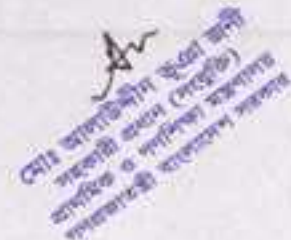 মোঃ আলাউদ্দীন ভূঁঞা জনী
সহকারী প্রধান (পরিকল্পনা)
প্রাথমিক ও গণশিক্ষা মন্ত্রণালয়
গণপ্রজাতন্ত্রী বাংলাদেশ সরকার